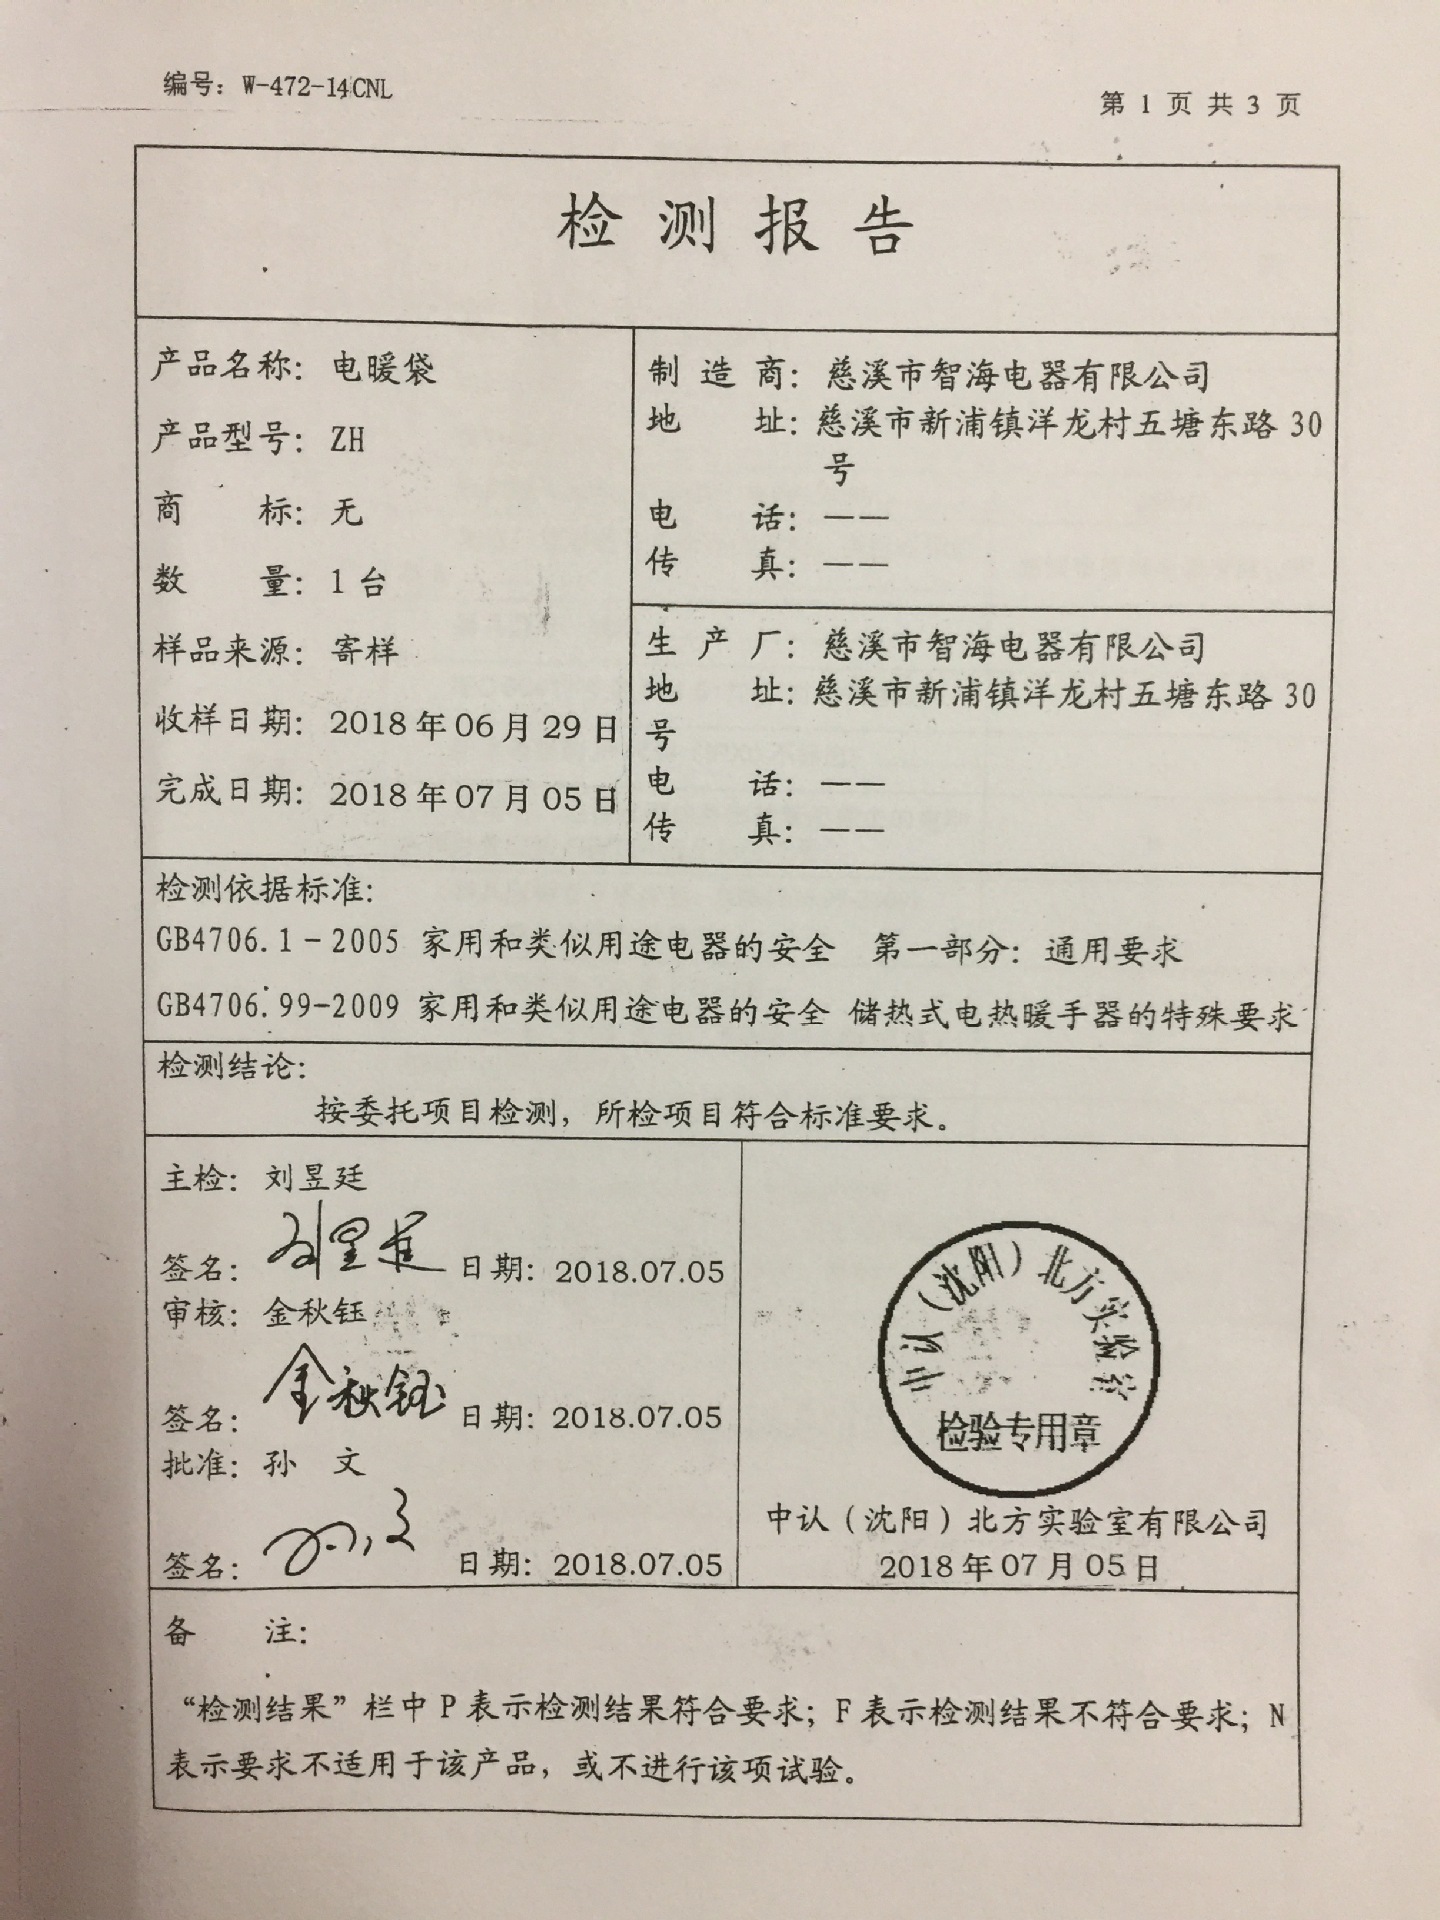 编号：W-472-14CNL
第 1 页 共 3 页
检测报告
产品名称：电暖袋
产品型号：ZH
商标：无
数量：1台
样品来源：寄样
收样日期：2018年06月29日
完成日期：2018年07月05日
制造商：慈溪市智海电器有限公司
地址：慈溪市新浦镇洋龙村五塘东路30
号
电话：——
传真：——
生产厂：慈溪市智海电器有限公司
地址：慈溪市新浦镇洋龙村五塘东路30
号
电话：——
传真：——
检测依据标准：
GB4706.1－2005 家用和类似用途电器的安全 第一部分：通用要求
GB4706.99-2009 家用和类似用途电器的安全 储热式电热暖手器的特殊要求
检测结论：
按委托项目检测，所检项目符合标准要求。
主检：刘昱廷
签名：刘昱廷 日期：2018.07.05
审核：金秋钰
签名：金秋钰 日期：2018.07.05
批准：孙 文
签名：孙文 日期：2018.07.05
中认（沈阳）北方实验室
检验专用章
中认（沈阳）北方实验室有限公司
2018年07月05日
备注：
“检测结果”栏中P表示检测结果符合要求；F表示检测结果不符合要求；N
表示要求不适用于该产品，或不进行该项试验。